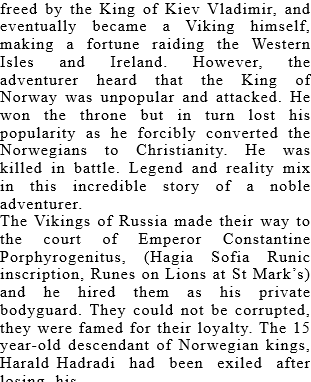 freed by the King of Kiev Vladimir, and
eventually became a Viking himself,
making a fortune raiding the Western
Isles and Ireland. However, the
adventurer heard that the King of
Norway was unpopular and attacked. He
won the throne but in turn lost his
popularity as he forcibly converted the
Norwegians to Christianity. He was
killed in battle. Legend and reality mix
in this incredible story of a noble
adventurer.
The Vikings of Russia made their way to
the court of Emperor Constantine
Porphyrogenitus, (Hagia Sofia Runic
inscription, Runes on Lions at St Mark's)
and he hired them as his private
bodyguard. They could not be corrupted,
they were famed for their loyalty. The 15
year-old descendant of Norwegian kings,
Harald Hadradi had been exiled after
losing his